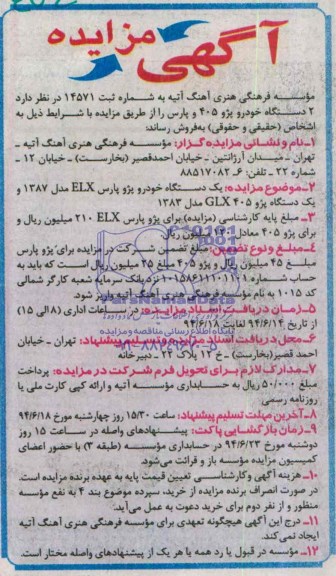 آگهی مزایده
مؤسسه فرهنگی هنری آهنگ آتیه به شماره ثبت ۱۴۵۷۱ در نظر دارد
۲ دستگاه خودرو پژو ۴۰۵ و پارس را از طریق مزایده با شرایط ذیل به
اشخاص (حقیقی و حقوقی) به‌فروش رساند:
۱ـ نام و نشانی مزایده گزار: مؤسسه فرهنگی هنری آهنگ آتیه ـ
تهران ـ میدان آرژانتین ـ خیابان احمدقصیر (بخارست) ـ خیابان ۱۲ ـ
شماره ۲۲ ـ تلفن: ۶ـ ۸۸۵۱۷۰۸۲
۲ـ موضوع مزایده: یک دستگاه خودرو پژو پارس ELX مدل ۱۳۸۷ و
یک دستگاه پژو ۴۰۵ GLX مدل ۱۳۸۳
۳ـ مبلغ پایه کارشناسی (مزایده) برای پژو پارس ELX ۲۱۰ میلیون ریال و
برای پژو ۴۰۵ معادل ۱۳۰ میلیون ریال
۴ـ مبلغ و نوع تضمین: مبلغ تضمین شرکت در مزایده برای پژو پارس
مبلغ ۴۵ میلیون ریال و پژو ۴۰۵ مبلغ ۲۵ میلیون ریال است که باید به
حساب شماره نزد بانک سرمایه شعبه کارگر شمالی
کد ۱۰۱۵ به نام مؤسسه فرهنگی هنری آهنگ آتیه واریز شود.
۵ـ زمان دریافت اسناد مزایده: در ساعات اداری (۸ الی ۱۵)
از تاریخ ۹۴/۶/۱۴ لغایت ۹۴/۶/۱۸
۶ـ محل دریافت اسناد مزایده و تسلیم پیشنهاد: تهران ـ خیابان
احمد قصیر(بخارست) ـ خ ۱۲ پلاک ۲۴ ـ دبیرخانه
۷ـ مدارک لازم برای تحویل فرم شرکت در مزایده: پرداخت
مبلغ ۵۰/۰۰۰ ریال به حسابداری مؤسسه آتیه و ارائه کپی کارت ملی یا
روزنامه رسمی
۸ـ آخرین مهلت تسلیم پیشنهاد: ساعت ۱۵/۳۰ روز چهارشنبه مورخ ۹۴/۶/۱۸
۹ـ زمان بازگشایی پاکت: پیشنهادهای واصله در ساعت ۱۵ روز
دوشنبه مورخ ۹۴/۶/۲۳ در حسابداری مؤسسه (طبقه ۳) با حضور اعضای
کمیسیون مزایده مؤسسه باز و قرائت می‌شود.
۱۰ـ هزینه آگهی و کارشناسی تعیین قیمت پایه به عهده برنده مزایده است.
در صورت انصراف برنده مزایده از خرید، سپرده موضوع بند ۴ به نفع مؤسسه
منظور و از نفر دوم برای خرید دعوت به عمل می‌آید.
۱۱ـ درج این آگهی هیچگونه تعهدی برای مؤسسه فرهنگی هنری آهنگ آتیه
ایجاد نمی کند.
۱۲ـ مؤسسه در قبول یا رد همه یا هر یک از پیشنهادهای واصله مختار است.